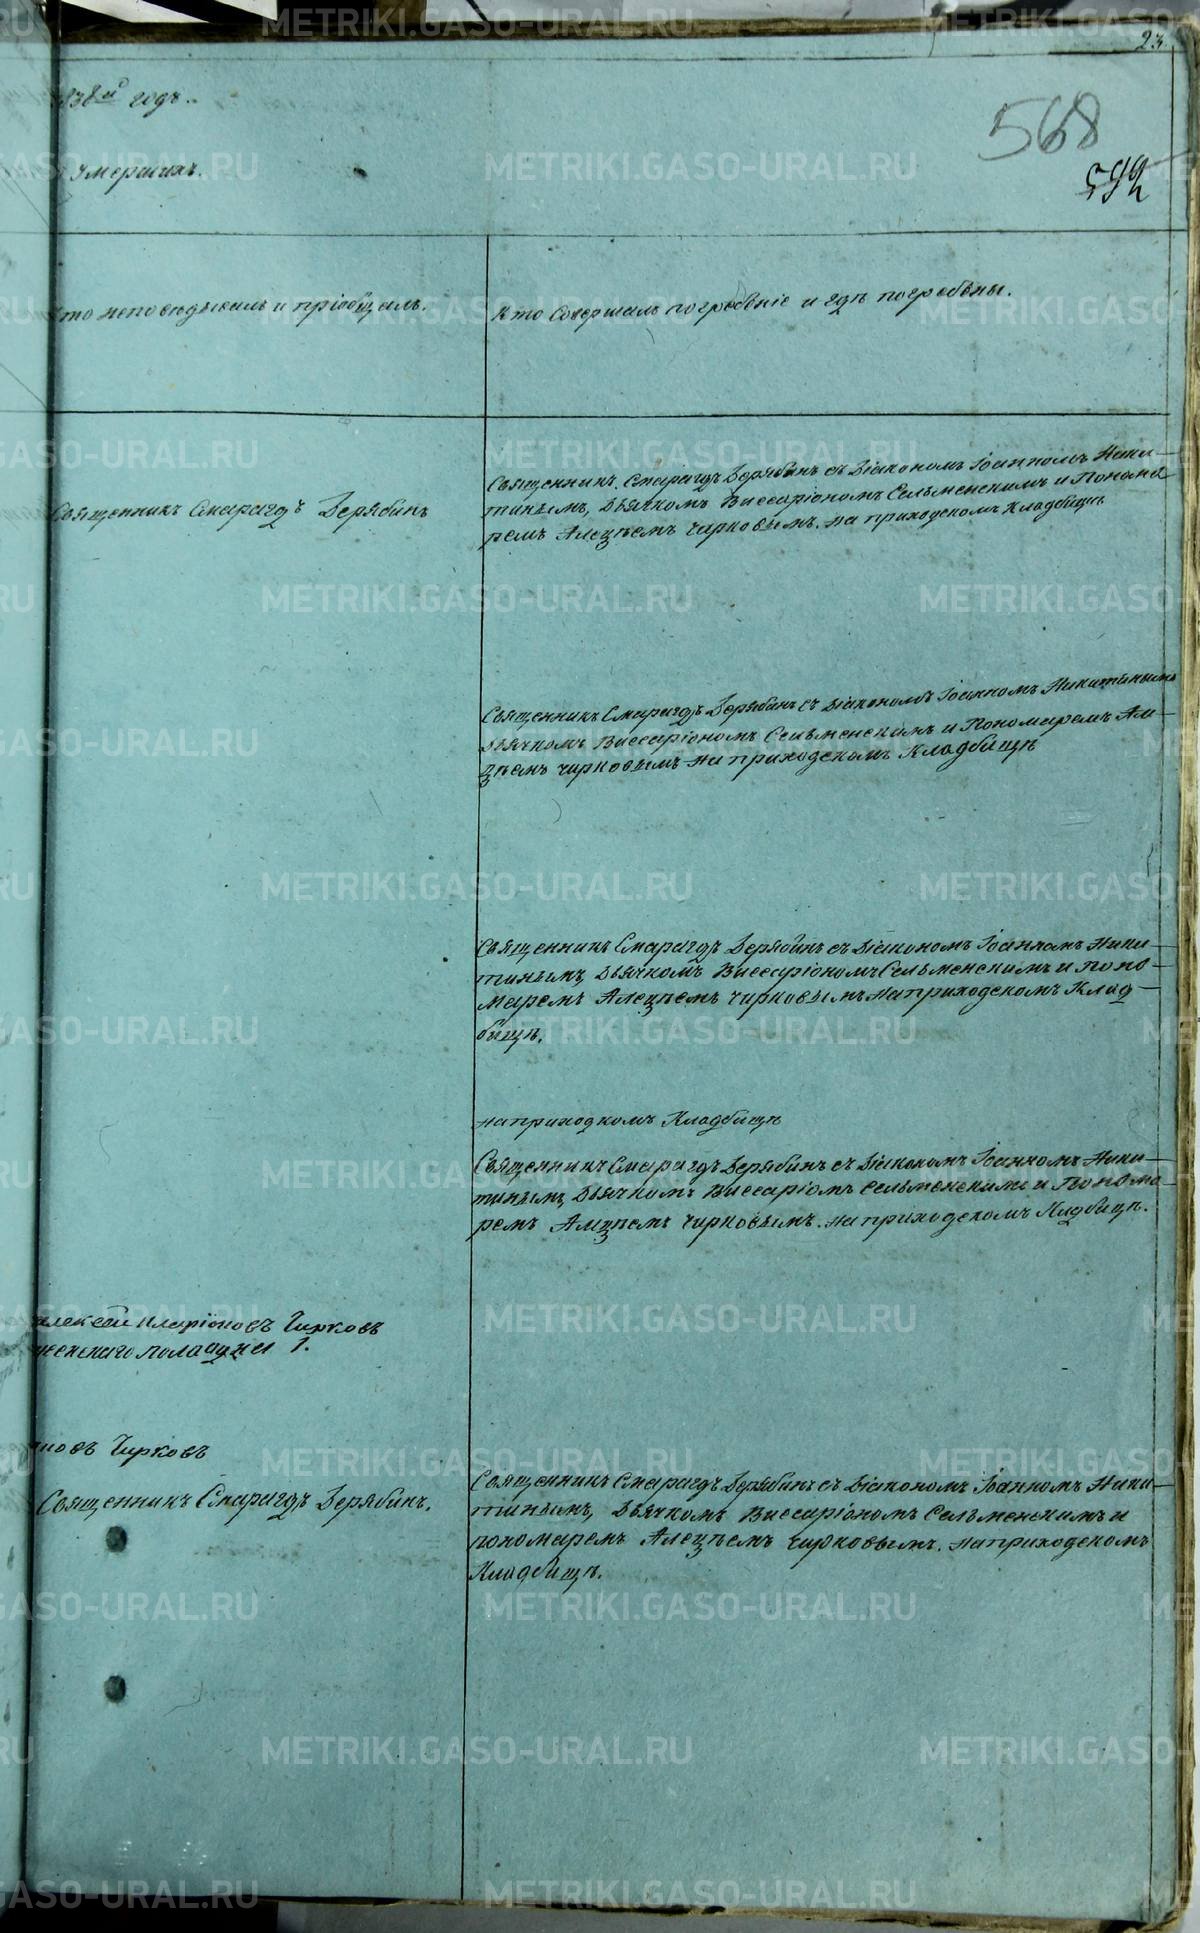 23
838й годъ.
568
592
умершихъ.
Кто исповѣдывалъ и пріобщалъ.
Кто совершалъ погребеніе и гдѣ погребены.
Священникъ Смарагдъ Дерябинъ
Священникъ Смарагдъ Дерябинъ съ Діакономъ Іоанномъ Ники-
тинымъ, Дьячкомъ Виссаріономъ Сельменскимъ и Понома
ремъ Алеѯѣемъ Чирковымъ. на приходскомъ Кладбищѣ
Священникъ Смарагдъ Дерябинъ съ Діакономъ Іоанномъ Никитинымъ
Дьячкомъ Виссаріономъ Сельменскимъ и Пономаремъ Але-
ѯѣемъ Чирковымъ на приходскомъ Кладбищѣ
Священникъ Смарагдъ Дерябинъ съ Діакономъ Іоанномъ Ники-
тинымъ, Дьячкомъ Виссаріономъ Сельменскимъ и Поно-
маремъ Алеѯѣемъ Чирковымъ на приходскомъ Клад-
бищѣ.
на приходкомъ Кладбищѣ
Священникъ Смарагдъ Дерябинъ съ Діакономъ Іоанномъ Ники-
тинымъ, Дьячкомъ Виссаріомъ Сельменскимъ и Понома-
ремъ Алеѯѣемъ Чирковымъ. на приходскомъ Кладбищѣ.
алексей иларіоновъ Чирковъ
Чирковъ
Священникъ Смарагдъ Дерябинъ.
Священникъ Смарагдъ Дерябинъ съ Діакономъ Іоанномъ Ники-
тинымъ, Дьячкомъ Виссаріономъ Сельменскимъ и
пономаремъ Алеѯѣемъ Чирковымъ. на приходскомъ
Кладбищѣ.
METRIKI.GASO-URAL.RU